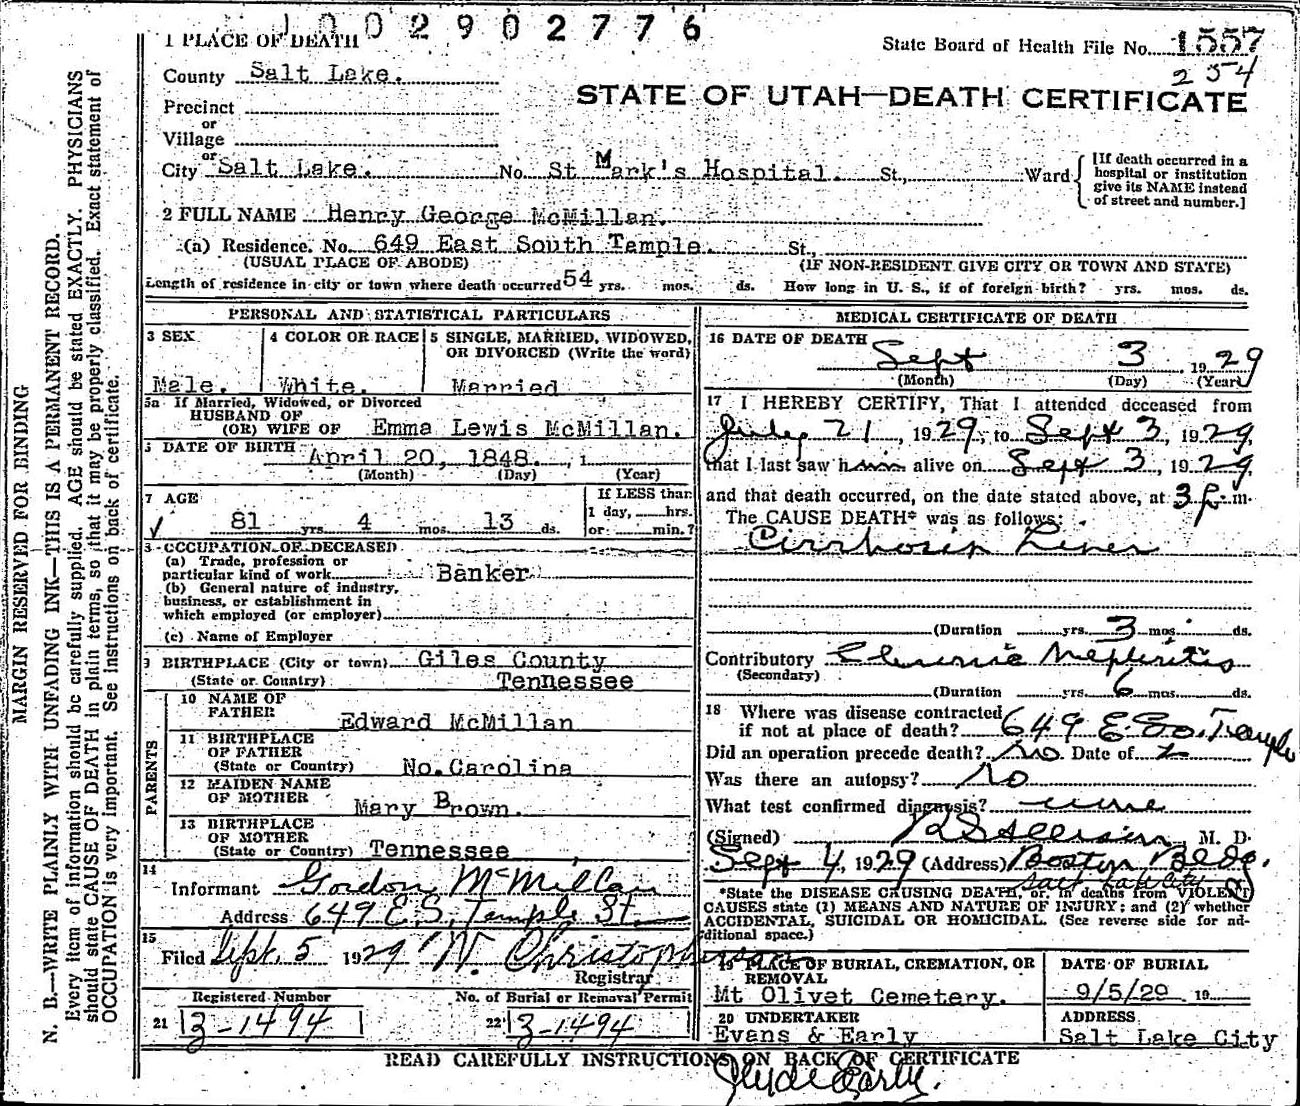 1002902776
1 PLACE OF DEATH
State Board of Health File No. 1557
254
County Salt Lake.
STATE OF UTAH—DEATH CERTIFICATE
Precinct
or
Village
or
City Salt Lake. No. St Mark's Hospital. St., Ward
[If death occurred in a
hospital or institution
give its NAME instead
of street and number.]
2 FULL NAME Henry George McMillan.
(a) Residence. No. 649 East South Temple. St.,
(USUAL PLACE OF ABODE) (IF NON-RESIDENT GIVE CITY OR TOWN AND STATE)
Length of residence in city or town where death occurred 54 yrs. mos. ds. How long in U. S., if of foreign birth? yrs. mos. ds.
PERSONAL AND STATISTICAL PARTICULARS
3 SEX
Male.
4 COLOR OR RACE
White.
5 SINGLE, MARRIED, WIDOWED,
OR DIVORCED (Write the word)
Married
5a If Married, Widowed, or Divorced
HUSBAND OF
(OR) WIFE OF Emma Lewis McMillan.
6 DATE OF BIRTH April 20, 1848. , 1
(Month) (Day) (Year)
7 AGE
81 yrs. 4 mos. 13 ds.
If LESS than
1 day, hrs.
or min.?
8 OCCUPATION OF DECEASED
(a) Trade, profession or
particular kind of work Banker
(b) General nature of industry,
business, or establishment in
which employed (or employer)
(c) Name of Employer
9 BIRTHPLACE (City or town) Giles County
(State or Country) Tennessee
PARENTS
10 NAME OF
FATHER Edward McMillan
11 BIRTHPLACE
OF FATHER
(State or Country) No. Carolina
12 MAIDEN NAME
OF MOTHER Mary Brown.
13 BIRTHPLACE
OF MOTHER
(State or Country) Tennessee
14
Informant Gordon McMillan
Address 649 E. S. Temple St.
15
Filed Sept. 5 1929 W. Christopherson
Registrar
Registered Number
21 3-1494
No. of Burial or Removal Permit
22 3-1494
MEDICAL CERTIFICATE OF DEATH
16 DATE OF DEATH
Sept 3 1929
(Month) (Day) (Year)
17 I HEREBY CERTIFY, That I attended deceased from
July 21, 1929, to Sept 3, 1929,
that I last saw him alive on Sept 3, 1929,
and that death occurred, on the date stated above, at 3 p. m.
The CAUSE DEATH* was as follows:
Cirrhosis Liver
(Duration yrs. 3 mos. ds.
Contributory Chronic Nephritis
(Secondary)
(Duration yrs. 6 mos. ds.
18 Where was disease contracted
if not at place of death? 649 E. So. Temple
Did an operation precede death? No. Date of
Was there an autopsy? No
What test confirmed diagnosis?
(Signed) M. D.
Sept 4, 1929 (Address) Boston Bldg.
Salt Lake City
*State the DISEASE CAUSING DEATH, or, in deaths from VIOLENT
CAUSES state (1) MEANS AND NATURE OF INJURY; and (2) whether
ACCIDENTAL, SUICIDAL OR HOMICIDAL. (See reverse side for ad-
ditional space.)
19 PLACE OF BURIAL, CREMATION, OR
REMOVAL
Mt Olivet Cemetery.
DATE OF BURIAL
9/5/29. 19
20 UNDERTAKER
Evans & Early
ADDRESS
Salt Lake City
READ CAREFULLY INSTRUCTIONS ON BACK OF CERTIFICATE
Clyde Early.
MARGIN RESERVED FOR BINDING
N. B.—WRITE PLAINLY WITH UNFADING INK—THIS IS A PERMANENT RECORD.
Every item of information should be carefully supplied. AGE should be stated EXACTLY. PHYSICIANS
should state CAUSE OF DEATH in plain terms, so that it may be properly classified. Exact statement of
OCCUPATION is very important. See instructions on back of certificate.